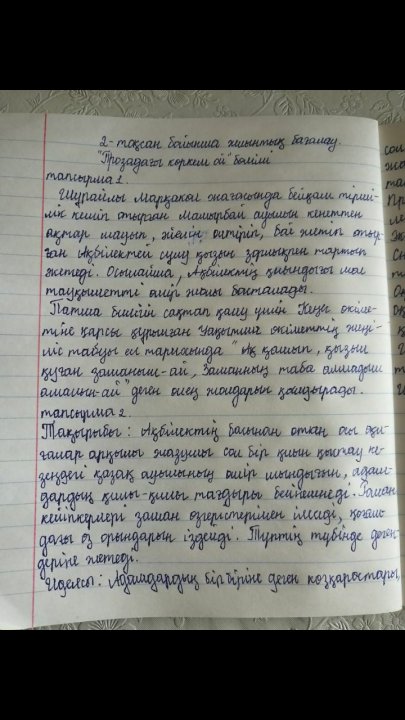 2-тоқсан бойынша жиынтық бағалау.
"Прозадағы көркем ой" бөлімі
тапсырма 1.
Шұрайлы Марқакөл жағасында бейқам тірші-
лік кешіп отырған Мамырбай ауылын кенеттен
ақтар шауып, әйелін өлтіріп, бой жетіп отыр-
ған Ақбілектей сұлу қызын зорлықпен тартып
әкетеді. Осылайша, Ақбілектің қиындығы мол
тауқыметті өмір жолы басталады.
Патша билігін сақтап қалу үшін Кеңес өкіме-
тіне қарсы құрылған Уақытша өкіметтің жеңі-
ліс табуы ел тарихында "Ақ қашып, қызыл
қуған заманың-ай, Заманның таба алмадым
амалын-ай" деген өлең жолдарын қалдырады.
тапсырма 2.
Тақырыбы: Ақбілектің басынан өткен осы оқи-
ғалар арқылы жазушы сол бір қиын қыстау ке-
зеңдегі қазақ ауылының өмір шындығын, адам-
дардың қилы-қилы тағдыры бейнеленеді. Роман
кейіпкерлері заман өзгерістерімен ілеседі, қоғам-
дағы өз орындарын іздейді. Түптің түбінде деген-
деріне жетеді.
Идеясы: Адамдардың бір-біріне деген көзқарастары,